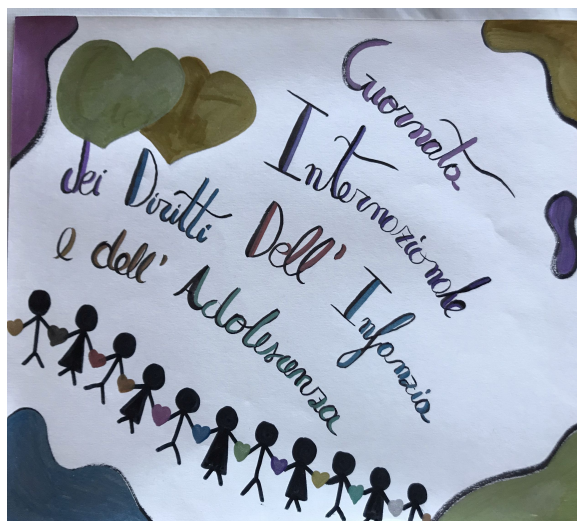 Giornata
Internazionale
dei Diritti Dell' Infanzia
e dell' Adolescenza